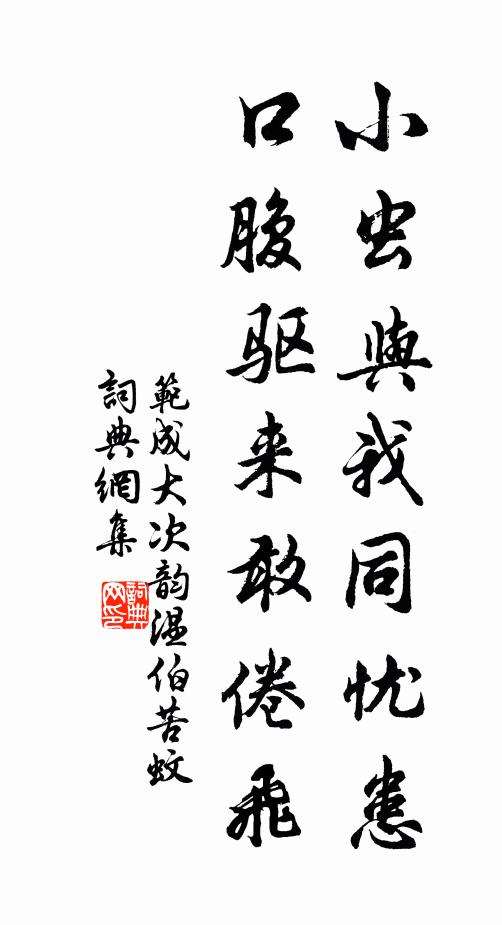 小虫與我同忧患
口腹驱来敢倦飛
範成大次韵温伯苦蚊
詞典網集
詞典网印